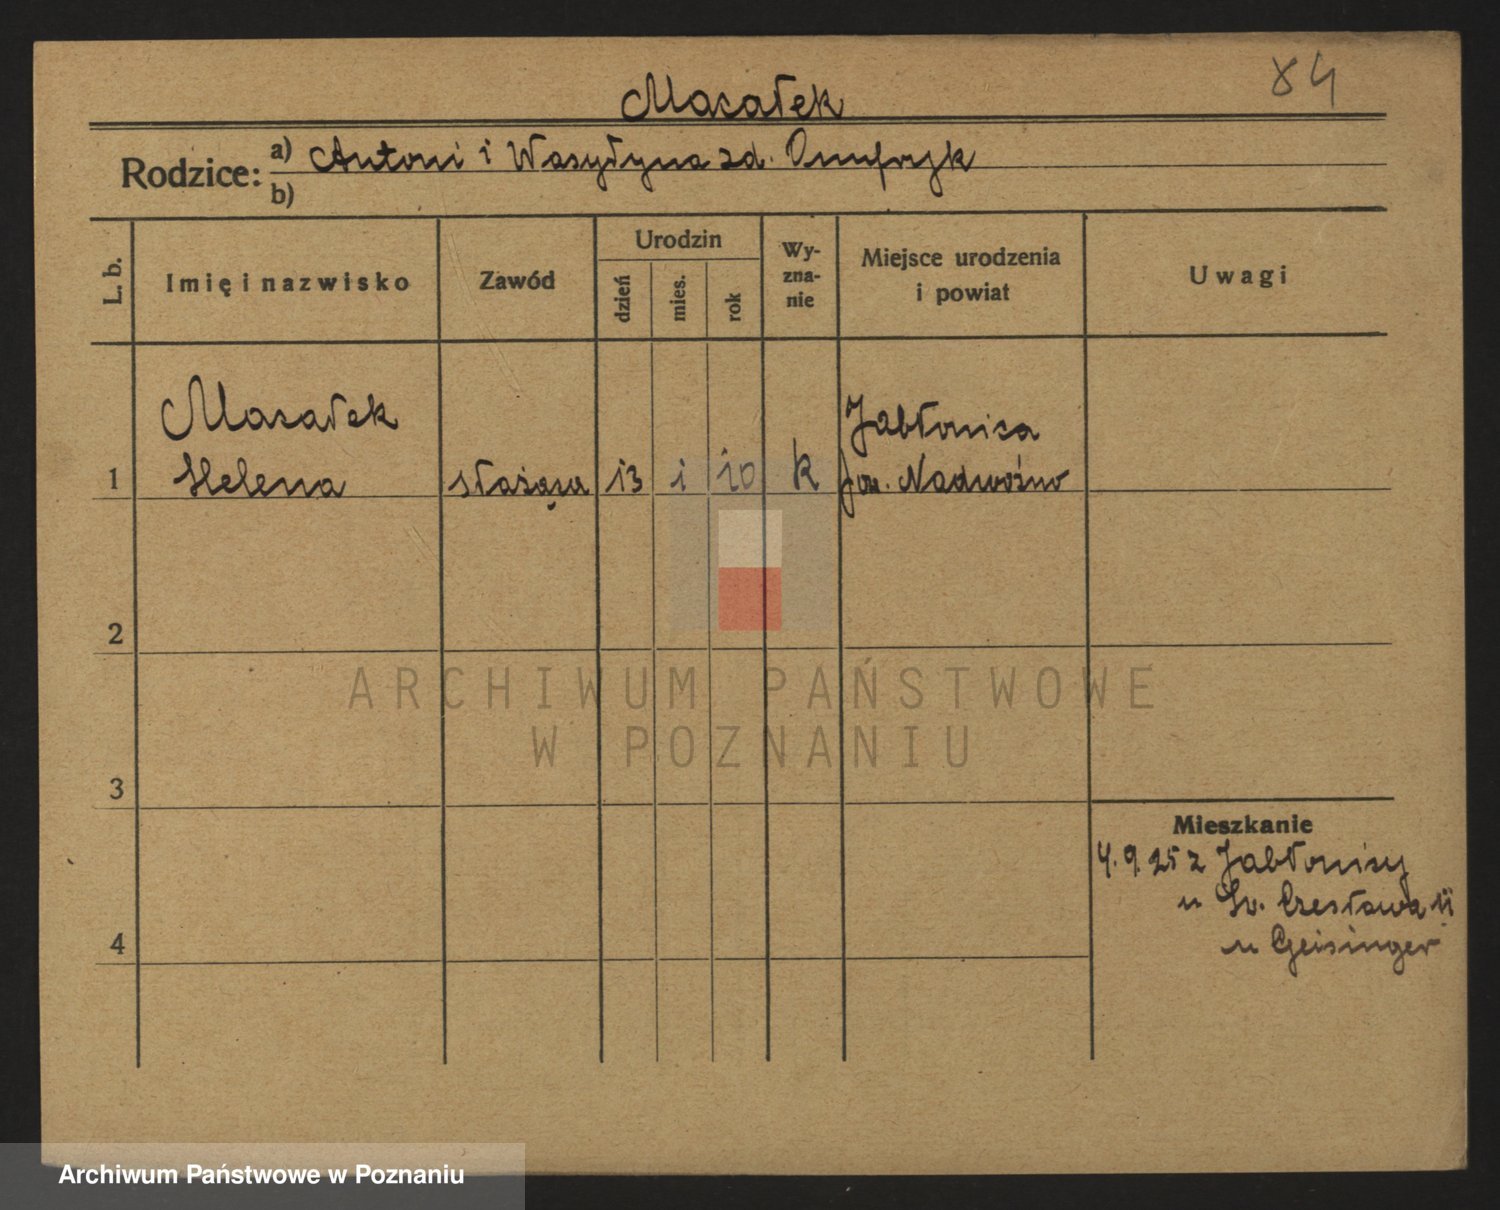 84
Macałek
Rodzice: a) Antoni i Wasyłyna zd. Onufryjk
b)
L. b.
Imię i nazwisko
Zawód
Urodzin
dzień
mies.
rok
Wy-
zna-
nie
Miejsce urodzenia
i powiat
Uwagi
Macałek
Jabłonica
1 Helena służąca 13 1 10 k pow. Nadwórno
2
3
4
ARCHIWUM PAŃSTWOWE
W POZNANIU
Mieszkanie
4.9.25 z Jabłonicy
u Św. Czesława 11
u Geisinger
Archiwum Państwowe w Poznaniu